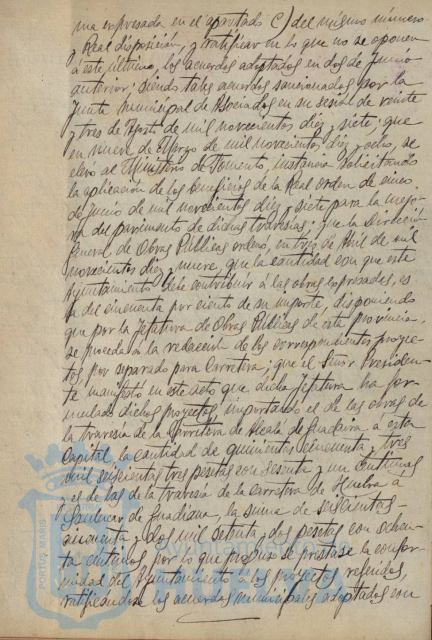 ma expresada en el apartado C) del mismo número
y Real disposición, y ratificar en lo que no se oponen
á este último, los acuerdos adoptados en dos de Junio
anterior; siendo tales acuerdos sancionados por la
Junta Municipal de Asociados en su sesión de veinte
y tres de Agosto de mil novecientos diez y siete; que
en nueve de Marzo de mil novecientos diez y ocho, se
elevó al Ministerio de Fomento, instancia solicitando
la aplicación de los beneficios de la Real orden de cinco
de Junio de mil novecientos diez y siete para la mejo-
ra del pavimento de dichas travesías; que la Dirección
General de Obras Públicas ordenó, en tres de Abril de mil
novecientos diez y nueve, que la cantidad con que este
Ayuntamiento debe contribuir á las obras expresadas, es
la del cincuenta por ciento de su importe, disponiendo
que por la Jefatura de Obras Públicas de esta provincia,
se proceda á la redacción de los correspondientes proyec-
tos por separado para Carretera; que el Señor Presiden-
te manifestó en este acto que dicha Jefatura ha for-
mulado dichos proyectos, importando el de las obras de
la travesía de la Carretera de Alcalá de Guadaira á esta
Capital, la cantidad de quinientas cincuenta y tres
mil seiscientas tres pesetas con sesenta y un céntimos
y el de las de la travesía de la Carretera de Huelva á
Sanlucar de Guadiana, la suma de seiscientas
cincuenta y dos mil setenta y dos pesetas con ochen-
ta céntimos por lo que propuso se prestase la confor-
midad del Ayuntamiento á los proyectos referidos,
ratificándose los acuerdos municipales adoptados con
PORTUS MARIS